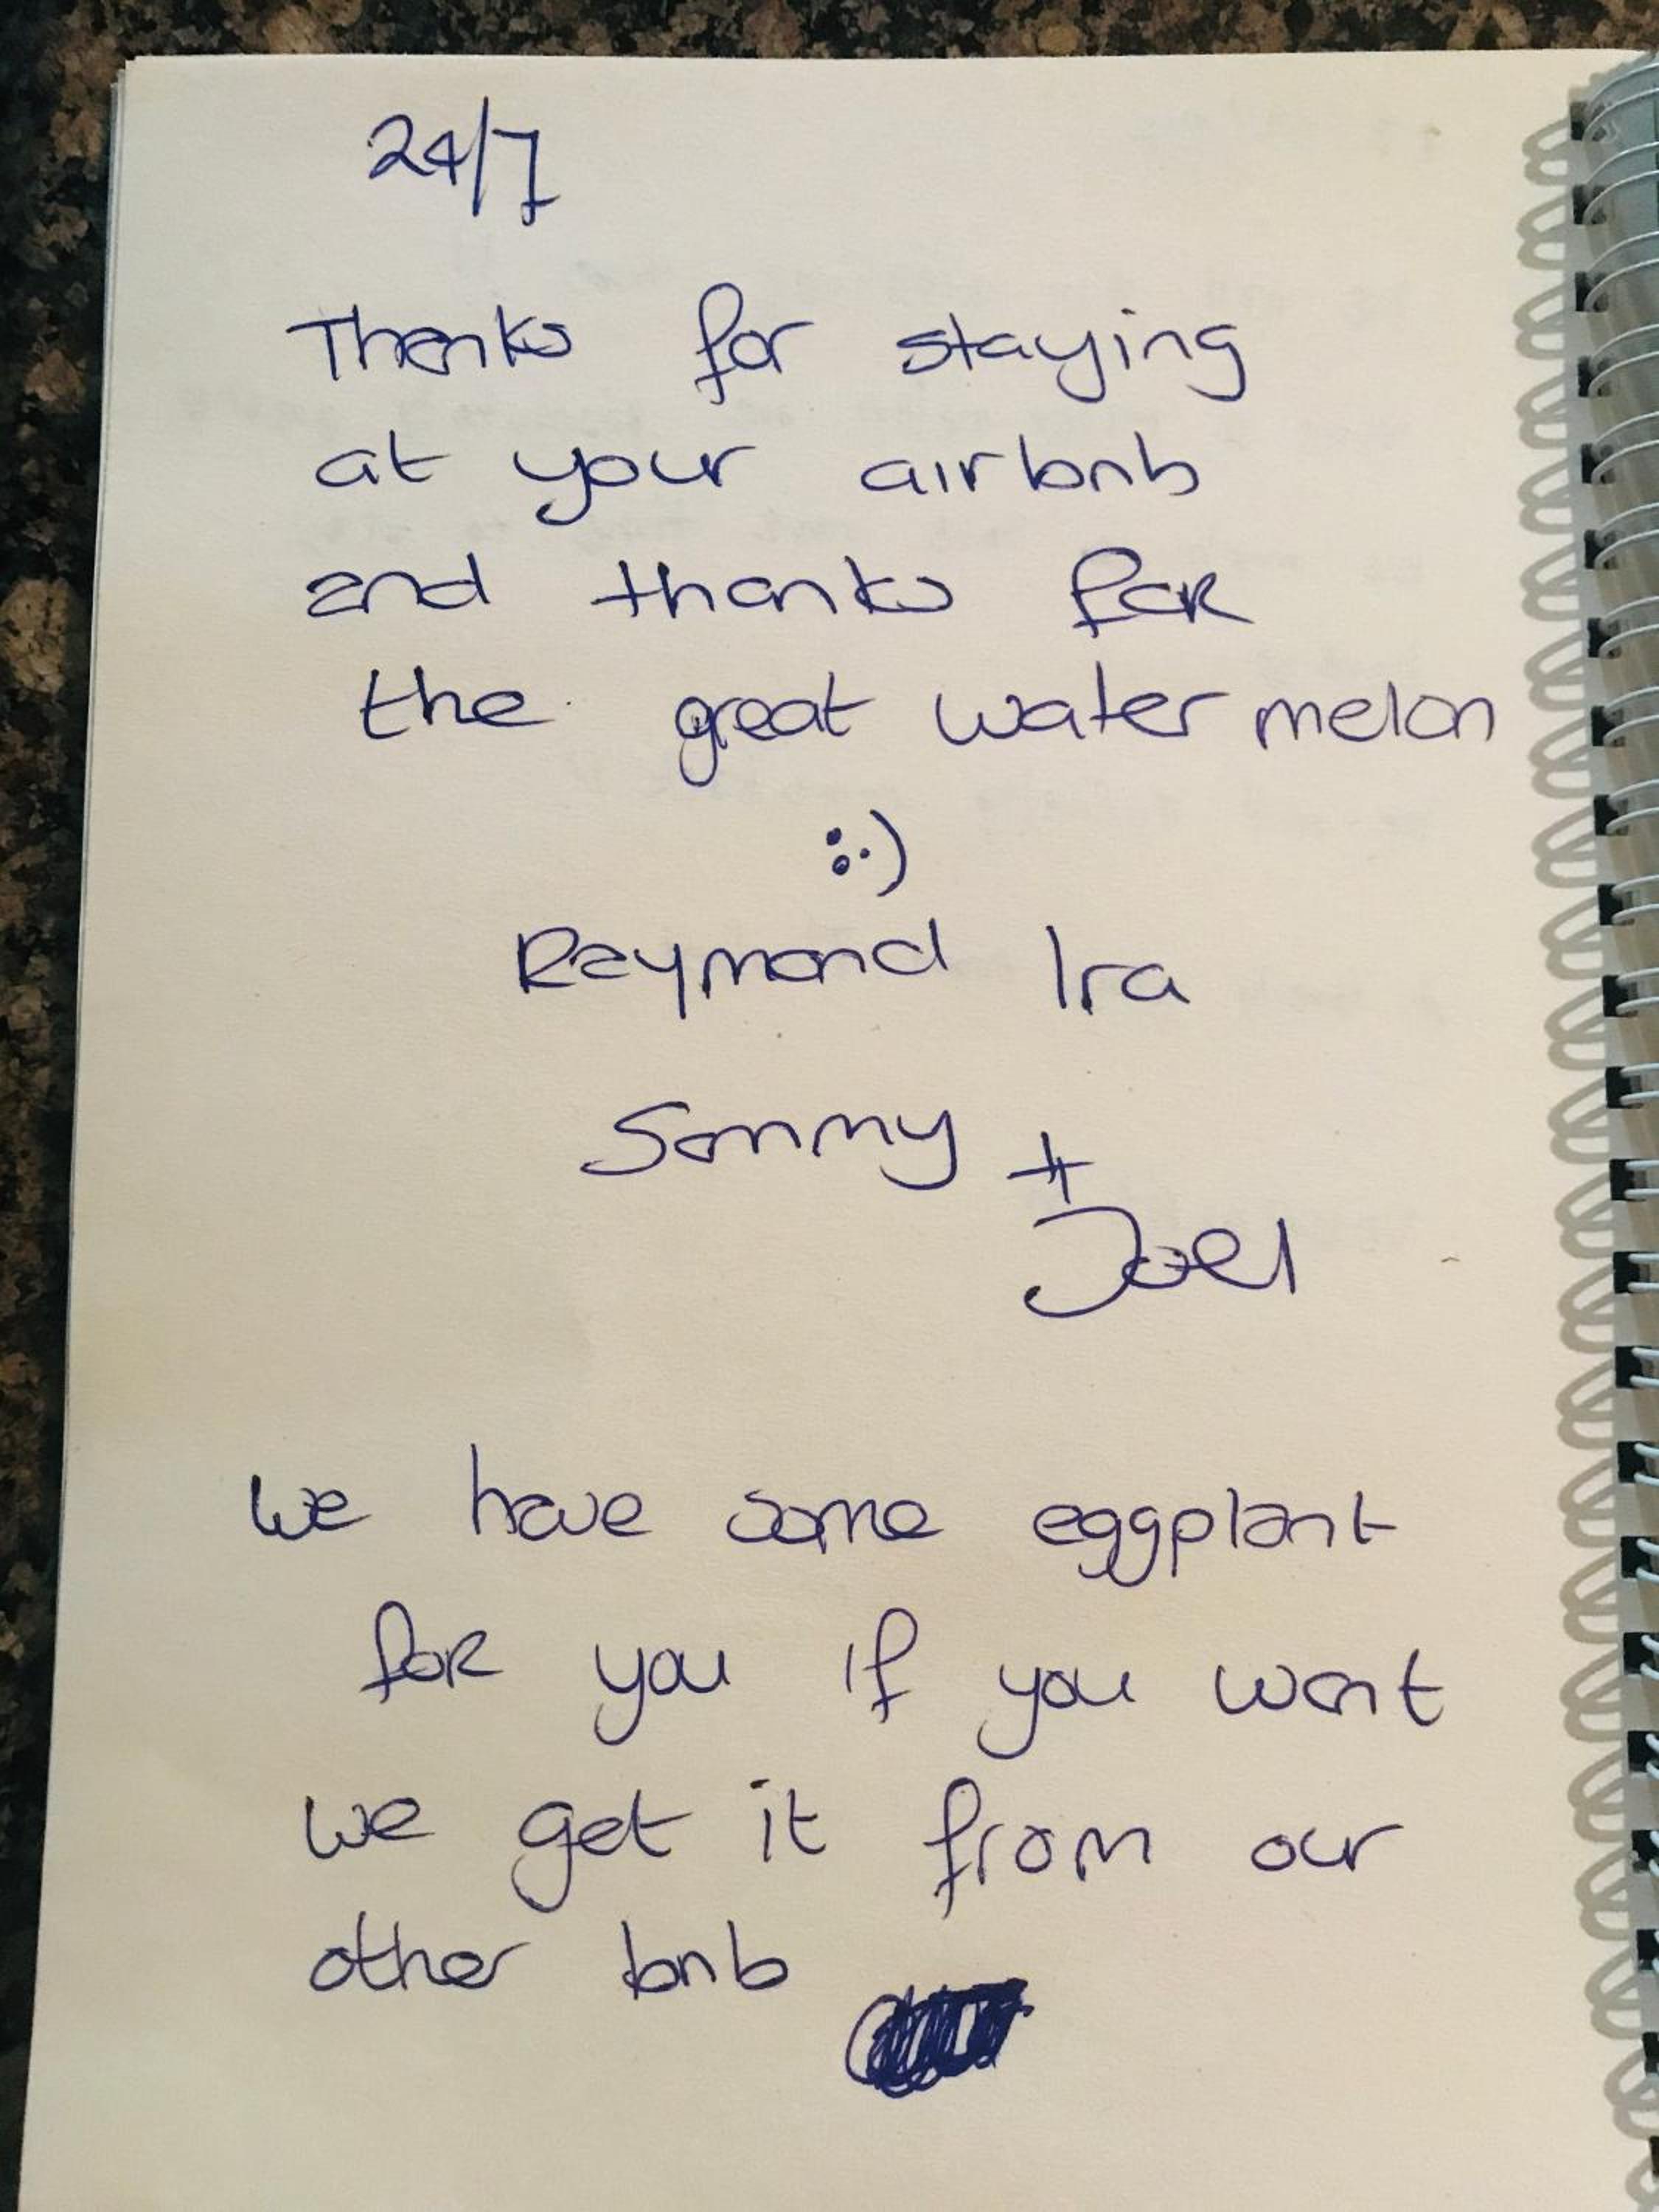 24/7
Thanks for staying
at your airbnb
and thanks for
the great water melon
:·)
Raymond Ira
Sammy +
Joel
we have some eggplant
for you if you want
we get it from our
other bnb